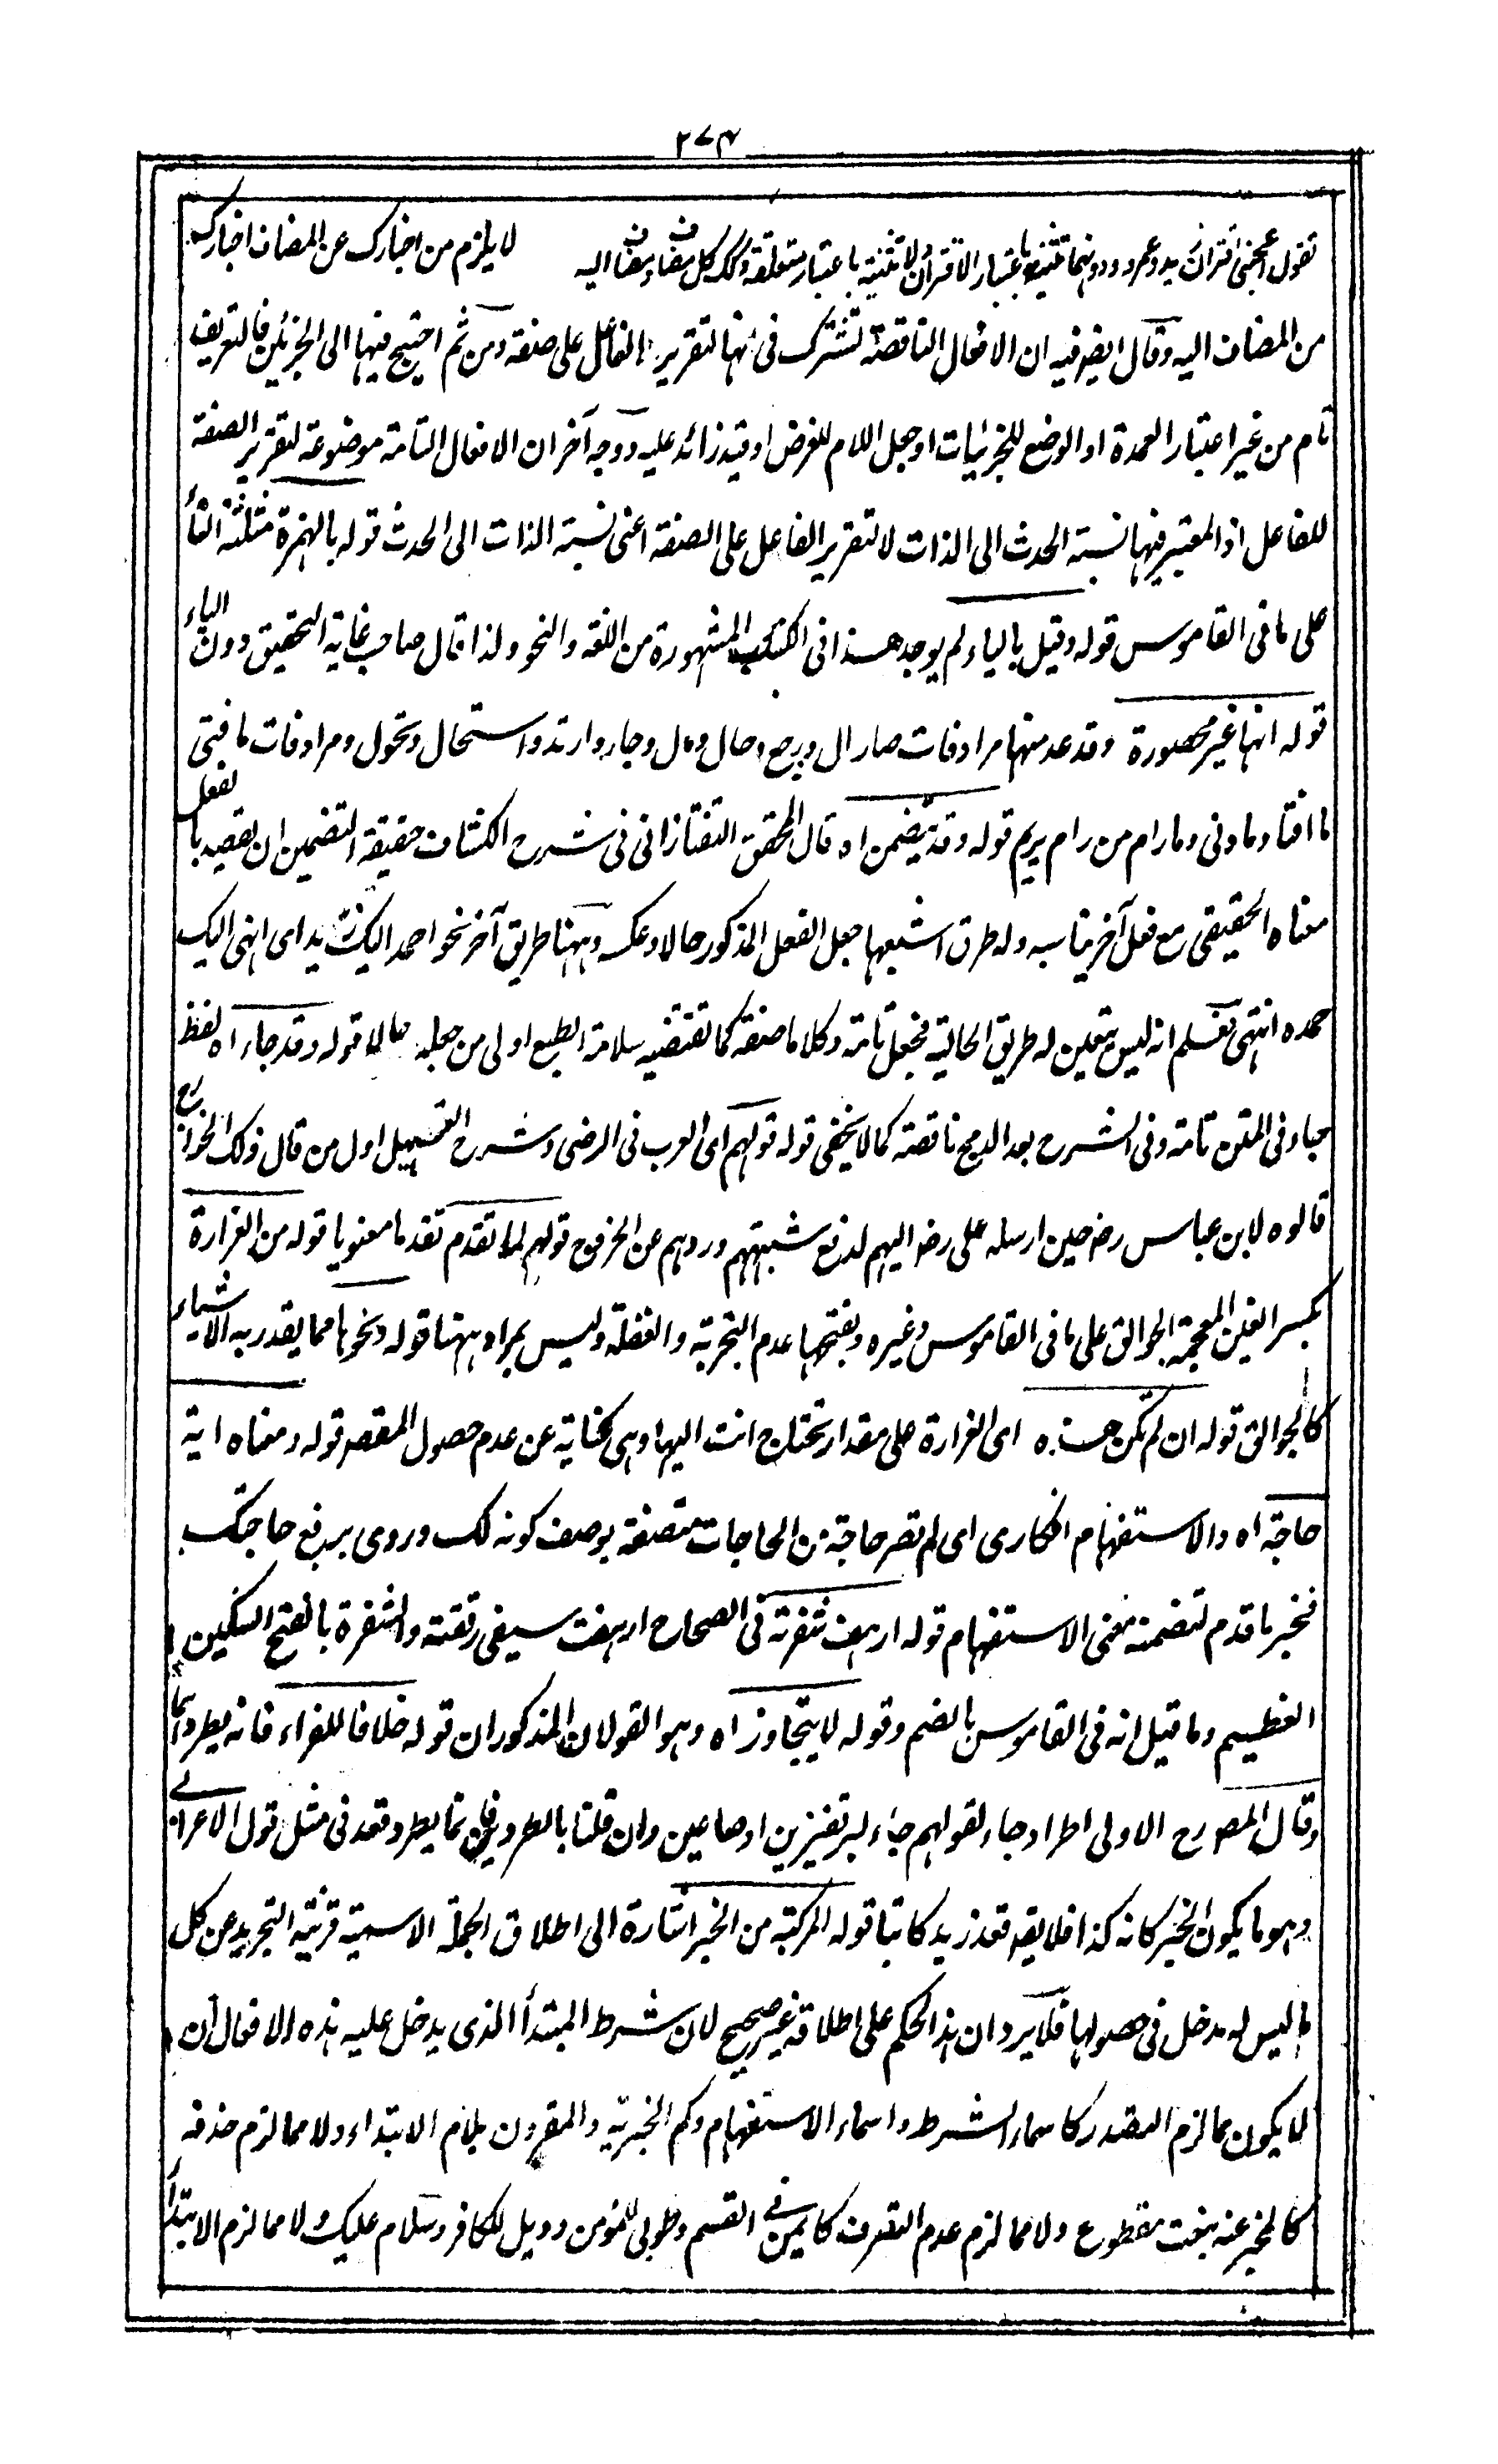 ٢٧٤
تقول اعجبنى اقتران زيد وعمرو ودونهما تثنية باعتبار الاقتران لا تثنية باعتبار متعلقه وكك كل مضاف ومضاف اليه لا يلزم من اخبارك عن المضاف اخبارك
من المضاف اليه وقال ايضو فيه ان الافعال الناقصة تشترك فى انها لتقرير الفاعل على صفة ومن ثم احتيج فيها الى الجزئين فالتعريف
تام من غير اعتبار العمدة او الوضع للجزئيات او جعل اللام للغرض او قيد زائد عليه ووجه آخر ان الافعال التامة موضوعة لتقرير الصفة
للفاعل اذ المعتبر فيها نسبة الحدث الى الذات لا لتقرير الفاعل على الصفة اعنى نسبة الذات الى الحدث قوله بالهمزة مثلثة التاء
على ما فى القاموس قوله وقيل بالياء لم يوجد هذا فى الكتب المشهورة من اللغة والنحو ولذا قال صاحب غاية التحقيق دون الياء
قوله انها غير محصورة وقد عد منها مرادفات صار ال ورجع وحال ومال وجار وارتد واستحال وتحول ومرادفات ما فتى
ما افتا وما ونى وما رام من رام يريم قوله وقد يضمن اه قال المحقق التفتازانى فى شرح الكشاف حقيقة التضمين ان يقصد بالفعل
معناه الحقيقى مع فعل آخر يناسبه وله طرق اشيعها جعل الفعل المذكور حالا وعكسه وههنا طريق آخر نحو احمد اليك زيد اى انهى اليك
حمده انتهى فعلم انه ليس يتعين له طريق الحالية فجعل تامة وكلاما صفة كما تقتضيه سلامة الطبع اولى من جعله حالا قوله وقد جاء اه لفظ
جاء وفى المتن تامة وفى الشرح بعد الدمج ناقصة كما لا يخفى قوله قولهم اى العرب فى الرضى وشرح التسهيل اول من قال ذلك الخوارج
قالوه لابن عباس رضـ حين ارسله على رضـ اليهم لدفع شبهتهم وردهم عن الخروج قولهم لما تقدم تقدما معنويا قوله من الغرارة
بكسر الغين المعجمة الجوالق على ما فى القاموس وغيره وبفتحها عدم التجربة والغفلة وليس بمراد ههنا قوله ونحوها مما يقدر به الاشياء
كالجوالق قوله ان لم تكن هذه اى الغرارة على مقدار تحتاج انت اليها وهى كناية عن عدم حصول المقصد قوله ومعناه اية
حاجة اه والاستفهام انكارى اى لم تصر حاجة من الحاجات متصفة بوصف كونه لك وروى برفع حاجتك
فخبر ما قدم لتضمنه معنى الاستفهام قوله ارهف شفرته فى الصحاح ارهفت سيفى رققته والشفرة بالفتح السكين
العظيم وما قيل انه فى القاموس بالضم وقوله لا يتجاوز اه وهو القولان المذكوران قوله خلافا للفراء فانه يطردهما
وقال المصـ رح الاولى اطراد جاء لقولهم جاء البر قفيزين او صاعين وان قلنا بالطرد فانما يطرد قعد فى مثل قول الاعرابى
وهو ما يكون الخبر كانه كذا فلا يقـ قعد زيد كاتبا قوله المركبة من الخبر اشارة الى اطلاق الجملة الاسمية قرينة التجريد عن كل
ما ليس له مدخل فى حصولها فلا يرد ان هذا الحكم على اطلاقه غير صحيح لان شرط المبتدأ الذى يدخل عليه هذه الافعال ان
لا يكون مما لزم الصدر كاسماء الشرط واسماء الاستفهام وكم الخبرية والمقرون بلام الابتداء ولا مما لزم حذفه
كالمخبر عنه بنعت مقطوع ولا مما لزم عدم التصرف كايمن فى القسم وطوبى للمؤمن وويل للكافر وسلام عليك ولا مما لزم الابتدا